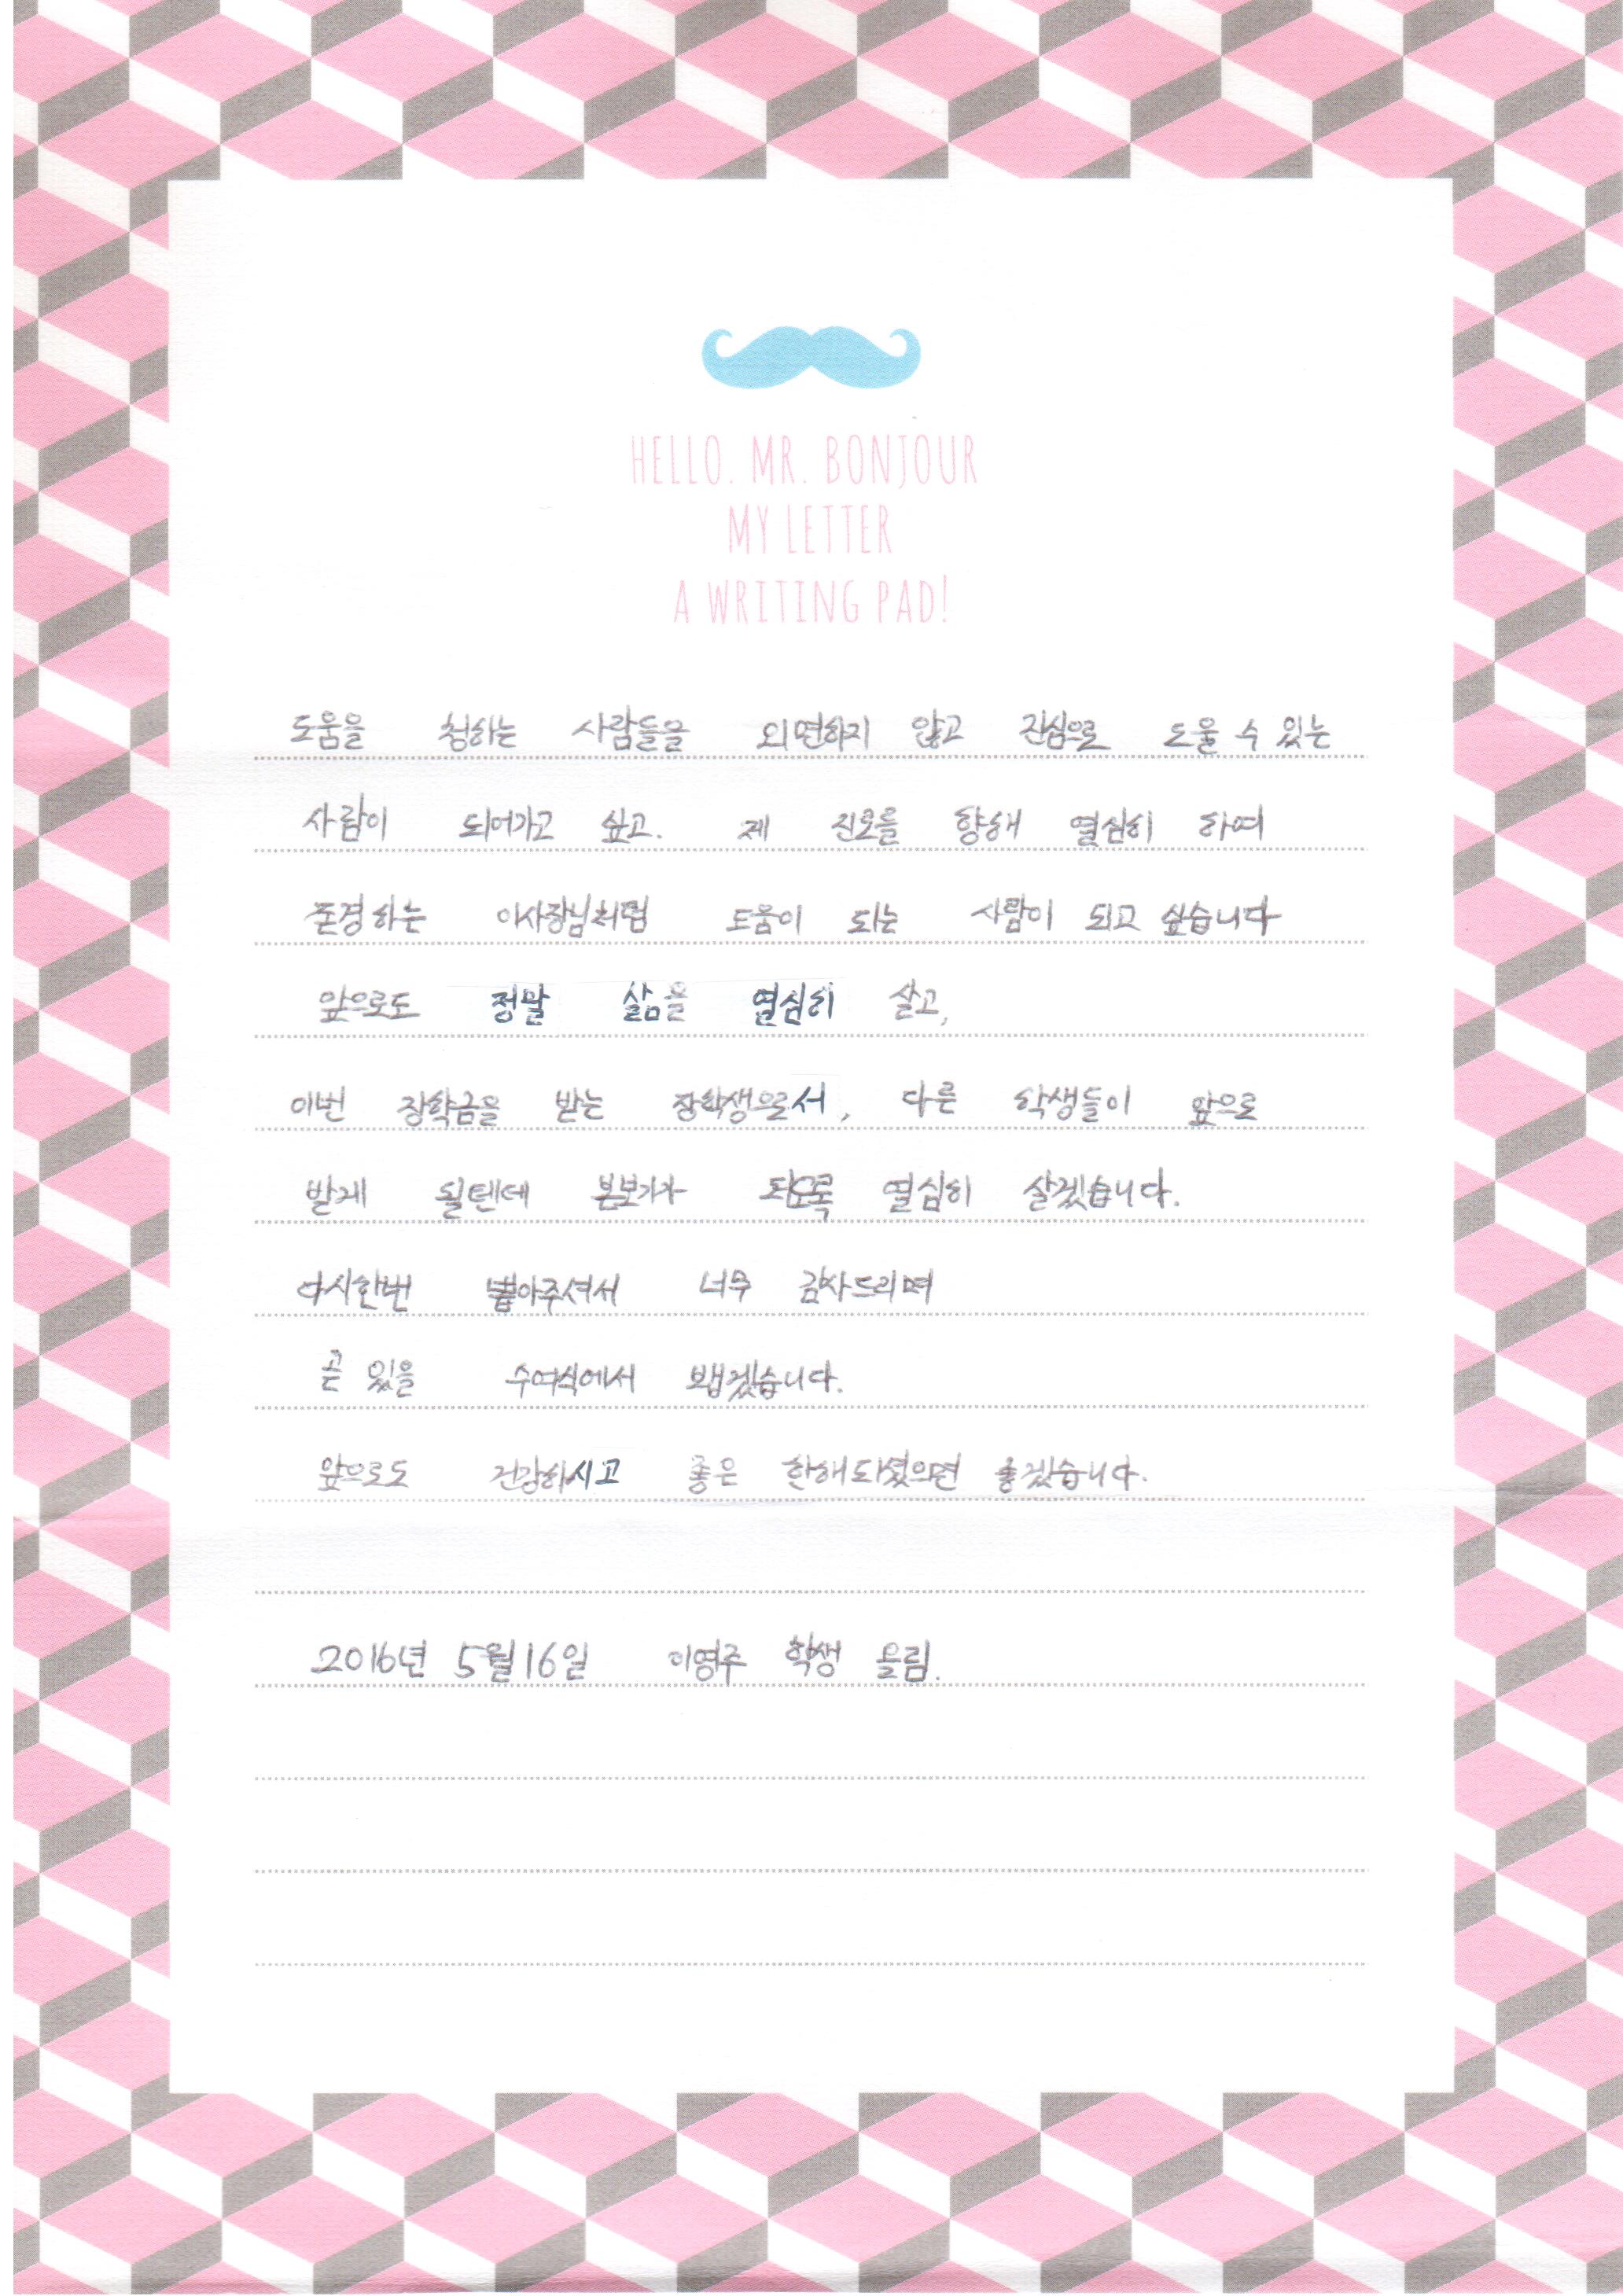 HELLO. MR. BONJOUR
MY LETTER
A WRITING PAD!
도움을 청하는 사람들을 외면하지 않고 진심으로 도울 수 있는
사람이 되어가고 싶고. 제 진로를 향해 열심히 하여
존경하는 이사장님처럼 도움이 되는 사람이 되고 싶습니다
앞으로도 정말 삶을 열심히 살고,
이번 장학금을 받는 장학생으로서, 다른 학생들이 앞으로
받게 될텐데 본보기가 되도록 열심히 살겠습니다.
다시한번 뽑아주셔서 너무 감사드리며
곧 있을 수여식에서 뵙겠습니다.
앞으로도 건강하시고 좋은 한해되셨으면 좋겠습니다.
2016년 5월16일 이영주 학생 올림.